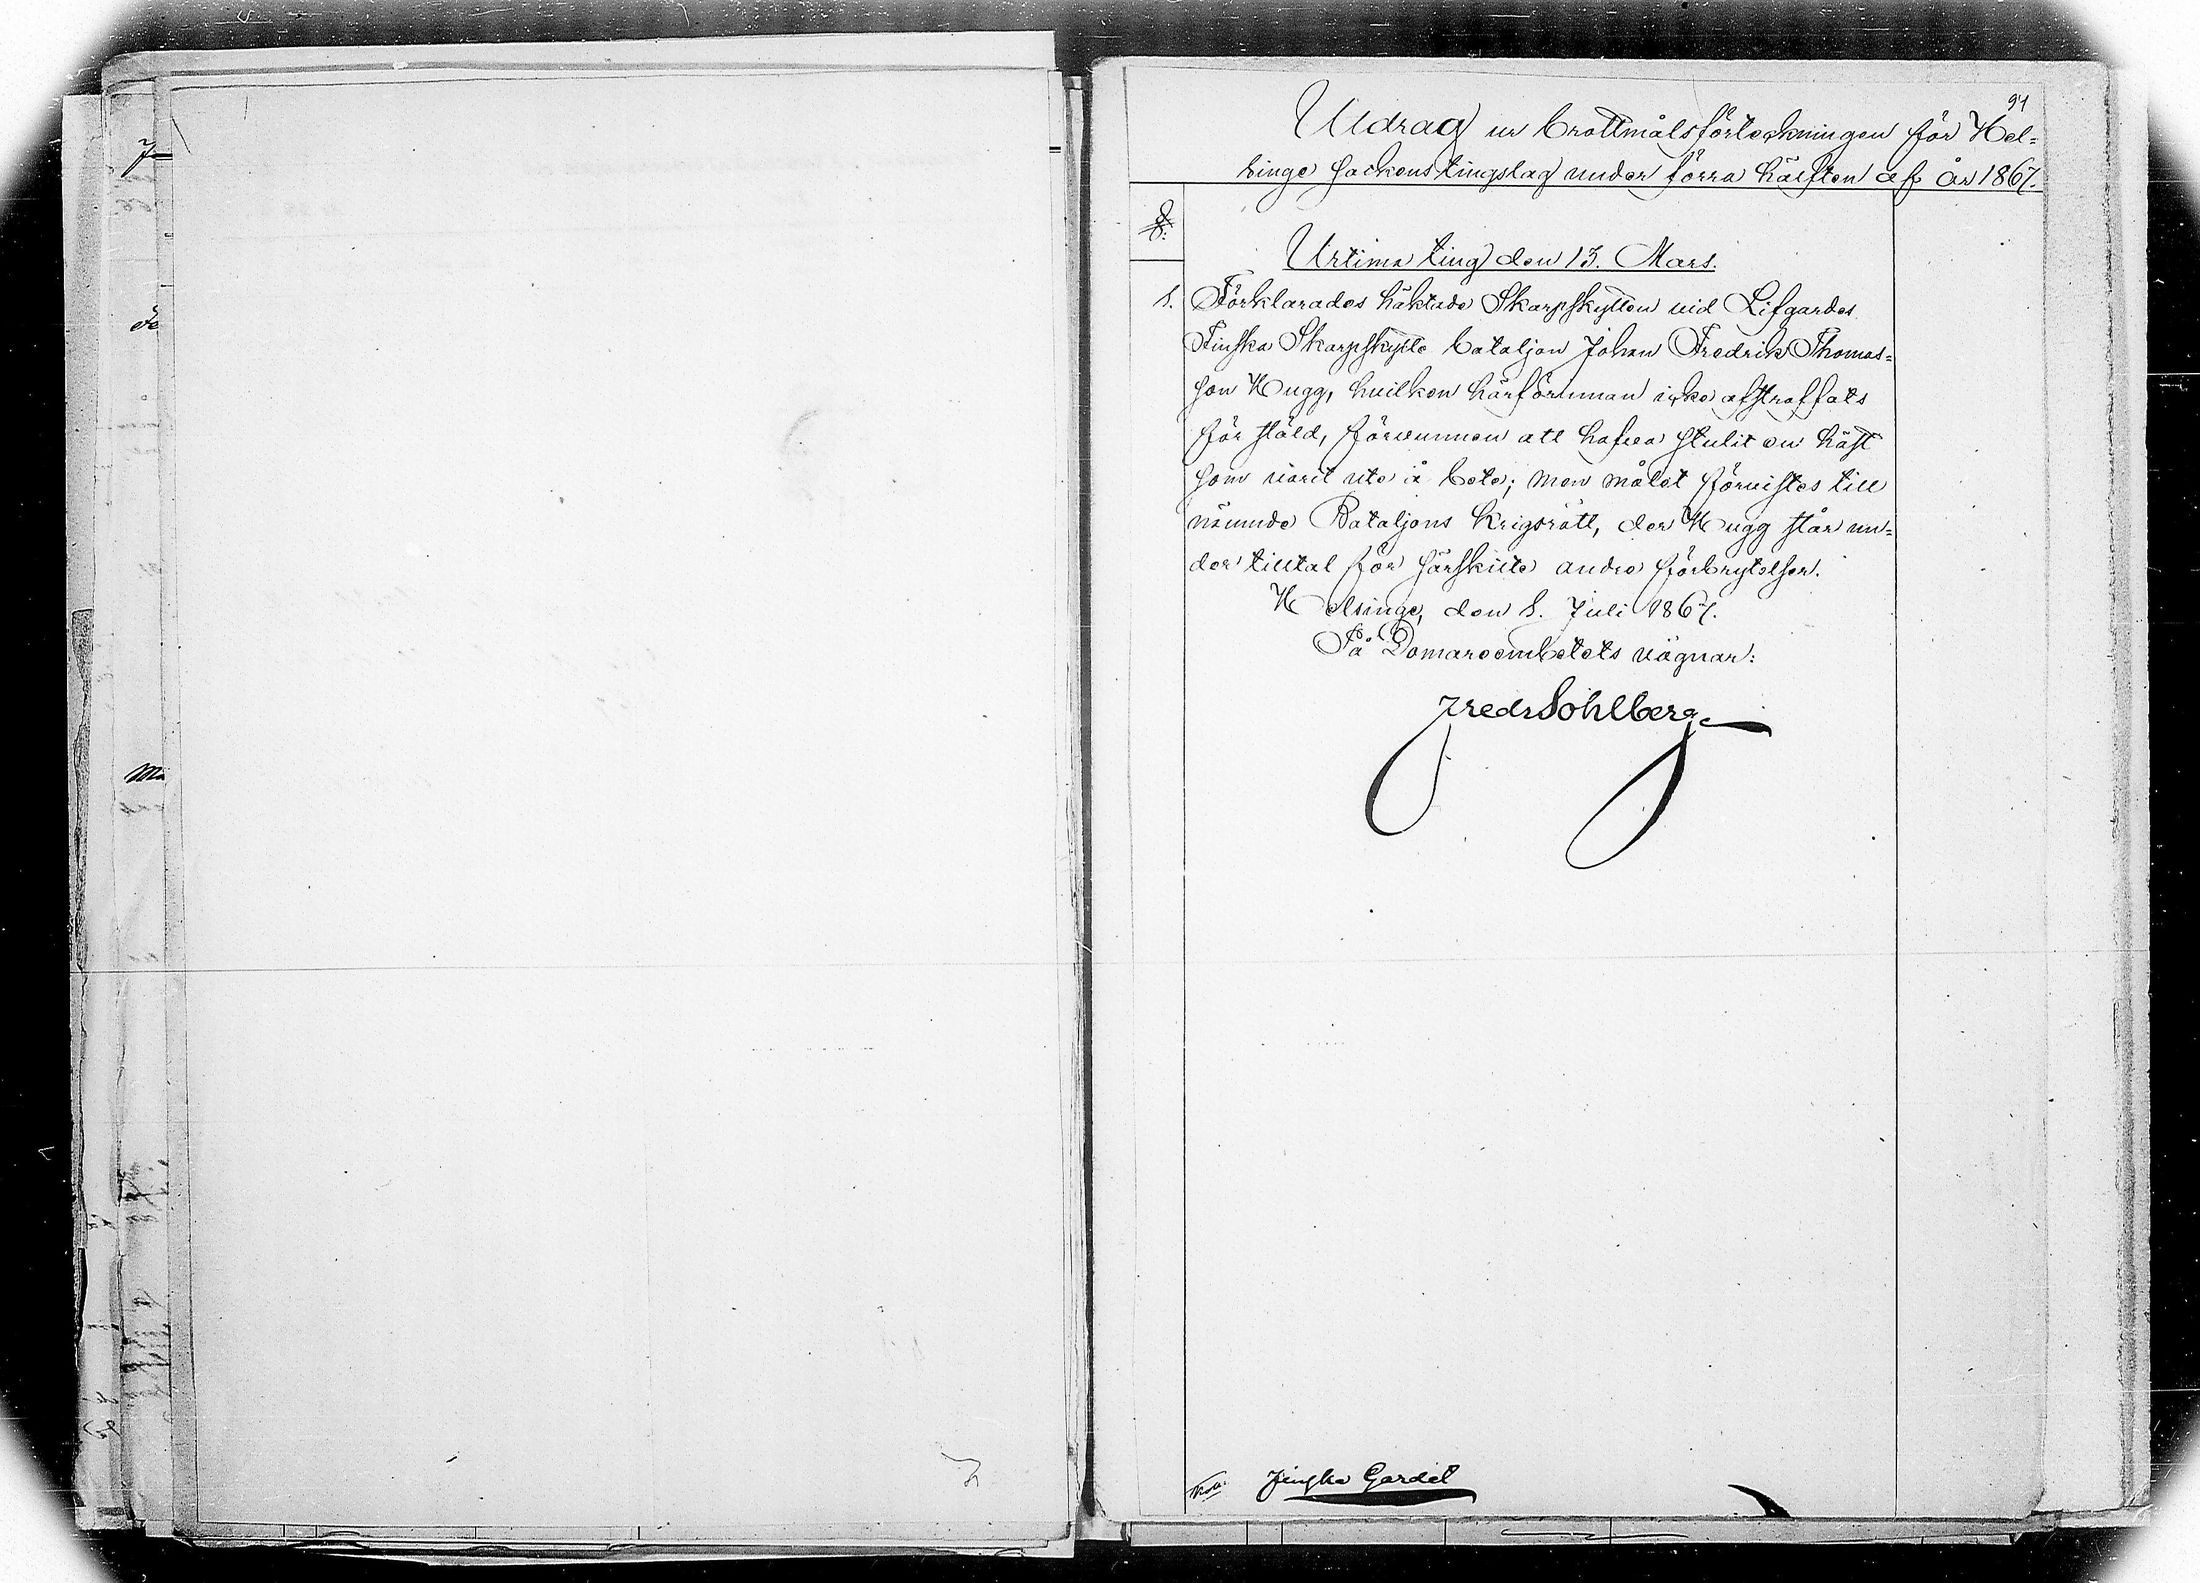 94
Utdrag ur brottmålsförteckningen för Hel=
singe sockens tingslag under förra hälften af år 1867.
Urtima ting den 13. Mars.
1. Förklarades häktade Skarpskytten vid Lifgardes
Finska Skarpskytte bataljon Johan Fredrik Thomas=
son Hugg, hvilken härförinnan icke afstraffats
för stöld, förvunnen att hafva stulit en häst
som varit ute å bete; men målet förvistes till
nämnde Bataljons Krigsrätt, der Hugg står un=
der tilltal för särskilte andra förbrytelser.
Helsinge, den 1. Juli 1867.
På Domareembetets vägnar:
Fredr Sohlberg
Finska Gardet